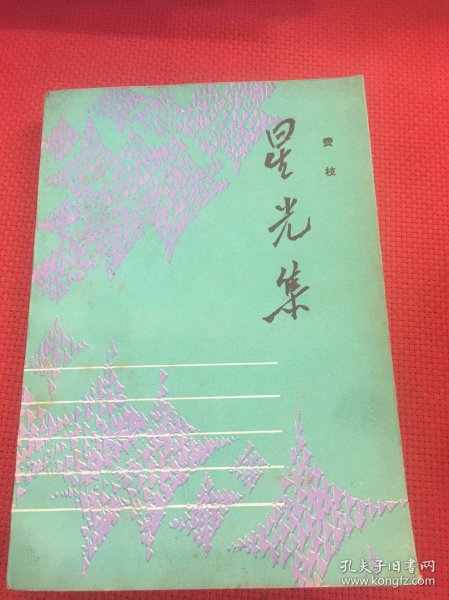 星光集
费枝
孔夫子旧书网
www.kongfz.com